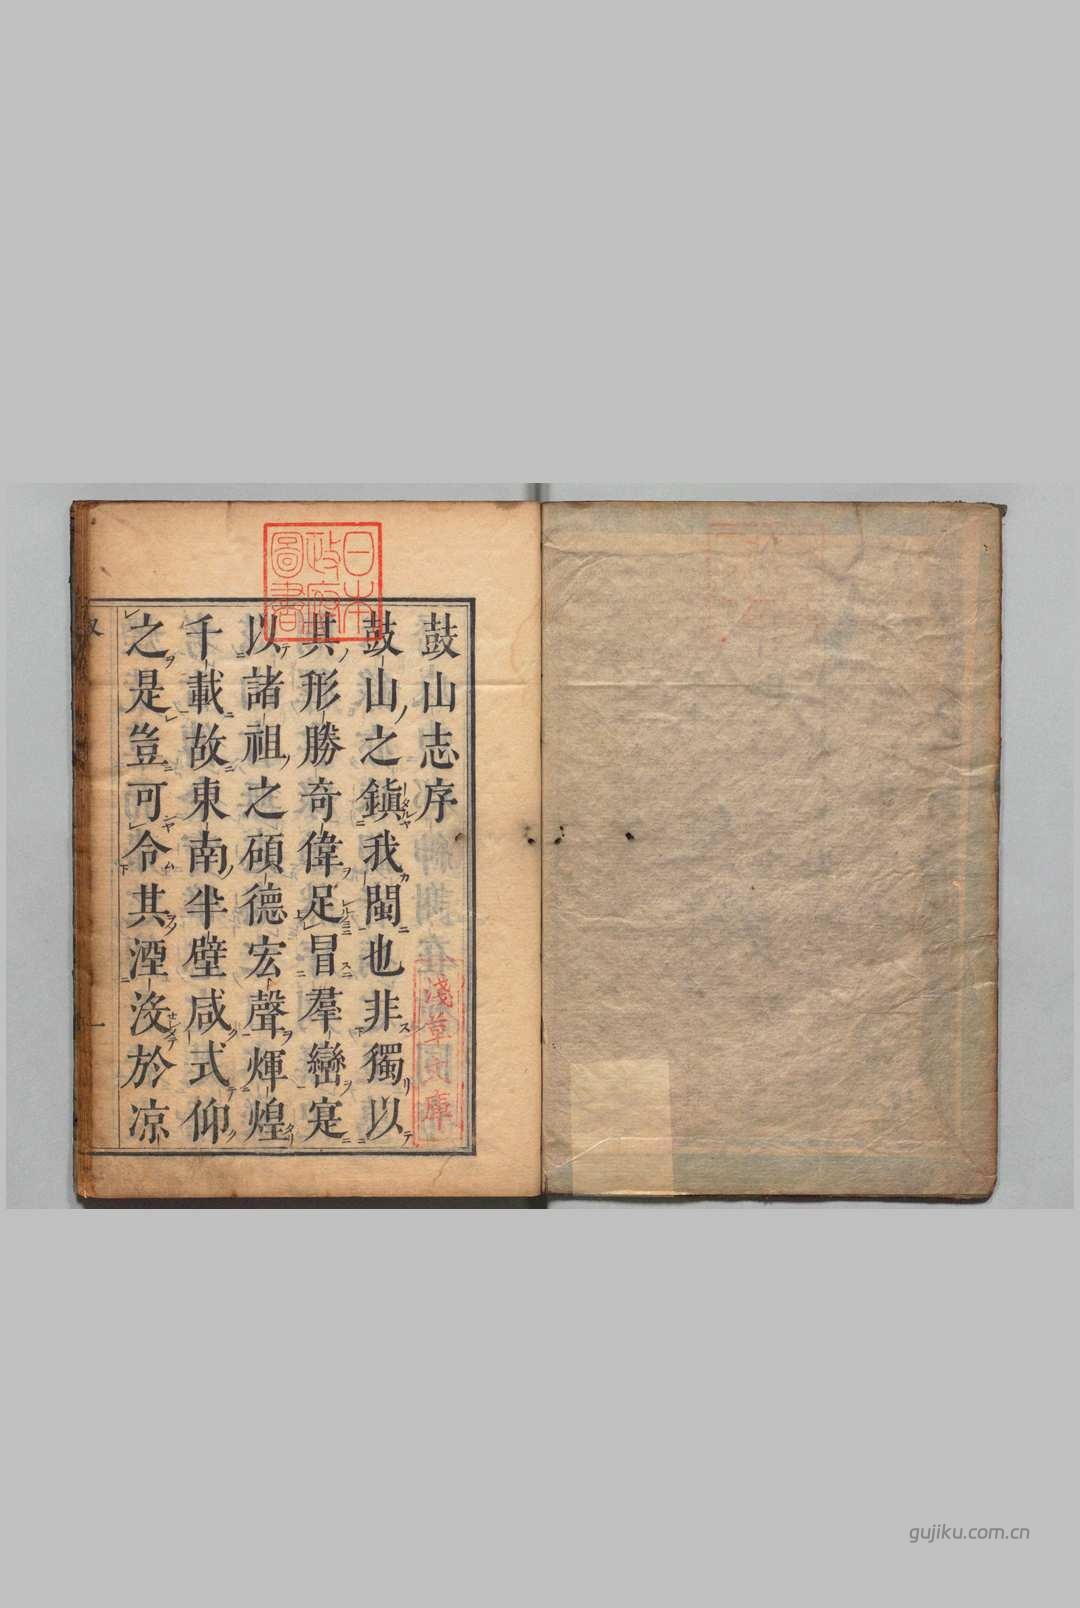 鼓山志序
鼓山之鎮我閩也非獨以
其形勝奇偉足冒羣巒寔
以諸祖之碩德宏聲煇煌
千載故東南半壁咸式仰
之是豈可令其湮沒於凉
日本
政府
圖書
淺草文庫
一
gujiku.com.cn